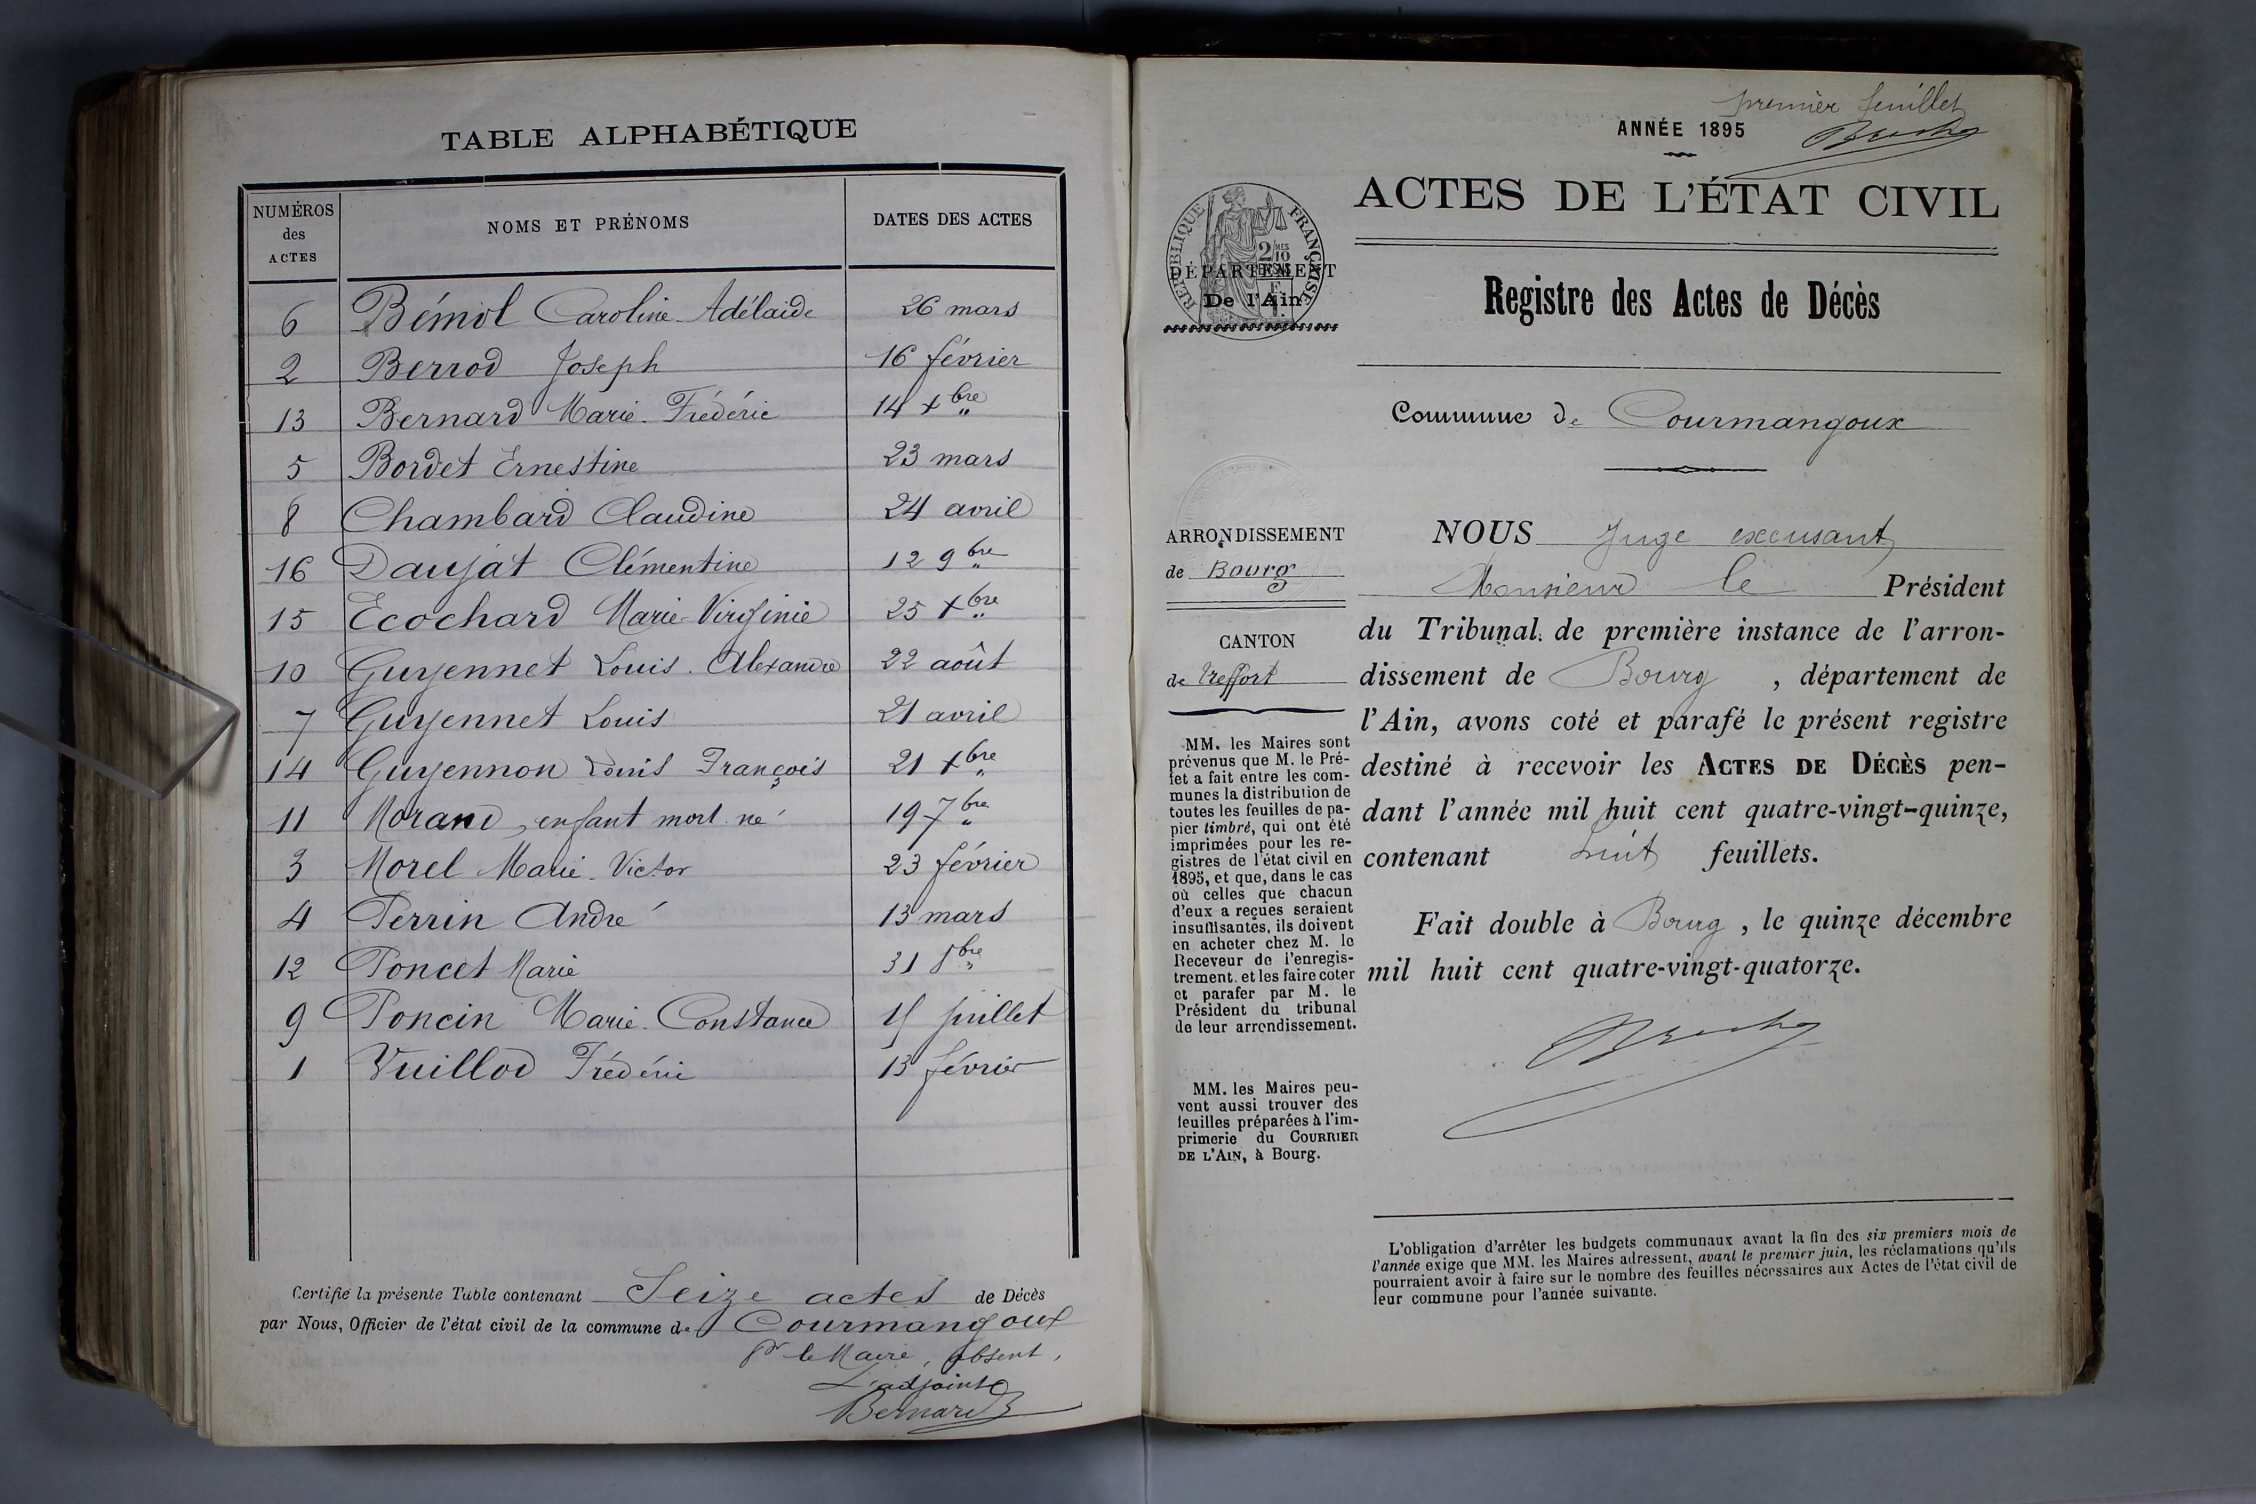 TABLE ALPHABÉTIQUE
NUMÉROS des ACTES NOMS ET PRÉNOMS DATES DES ACTES
6 Bémol Caroline Adélaïde 26 mars
2 Berrod Joseph 16 février
13 Bernard Marie-Frédéric 14 Xbre
5 Bordet Ernestine 23 mars
8 Chambard Claudine 24 avril
16 Daujat Clémentine 12 9bre
15 Ecochard Marie-Virginie 25 Xbre
10 Guyennet Louis-Alexandre 22 août
7 Guyennet Louis 21 avril
14 Guyennon Louis François 21 Xbre
11 Morand, enfant mort-né 19 7bre
3 Morel Marie-Victor 23 février
4 Perrin André 13 mars
12 Poncet Marie 31 8bre
9 Poncin Marie-Constance juillet
1 Vuillod Frédéric 13 février
Certifié la présente Table contenant Seize actes de Décès
par Nous, Officier de l'état civil de la commune de Courmangoux
Pr le Maire, absent,
L'adjoint
Bernard
premier feuillet
ANNÉE 1895
ACTES DE L'ÉTAT CIVIL
RÉPUBLIQUE FRANÇAISE
2 MES 10 EN SUS
DÉPARTEMENT
De l'Ain
Registre des Actes de Décès
Commune de Courmangoux
ARRONDISSEMENT
de Bourg
CANTON
de Treffort
MM. les Maires sont
prévenus que M. le Pré-
fet a fait entre les com-
munes la distribution de
toutes les feuilles de pa-
pier timbré, qui ont été
imprimées pour les re-
gistres de l'état civil en
1895, et que, dans le cas
où celles que chacun
d'eux a reçues seraient
insuffisantes, ils doivent
en acheter chez M. le
Receveur de l'enregis-
trement. et les faire coter
et parafer par M. le
Président du tribunal
de leur arrondissement.
MM. les Maires peu-
vent aussi trouver des
feuilles préparées à l'im-
primerie du COURRIER
DE L'AIN, à Bourg.
NOUS Juge excusant
Monsieur le Président
du Tribunal de première instance de l'arron-
dissement de Bourg, département de
l'Ain, avons coté et parafé le présent registre
destiné à recevoir les ACTES DE DÉCÈS pen-
dant l'année mil huit cent quatre-vingt-quinze,
contenant huit feuillets.
Fait double à Bourg, le quinze décembre
mil huit cent quatre-vingt-quatorze.
L'obligation d'arrêter les budgets communaux avant la fin des six premiers mois de
l'année exige que MM. les Maires adressent, avant le premier juin, les réclamations qu'ils
pourraient avoir à faire sur le nombre des feuilles nécessaires aux Actes de l'état civil de
leur commune pour l'année suivante.